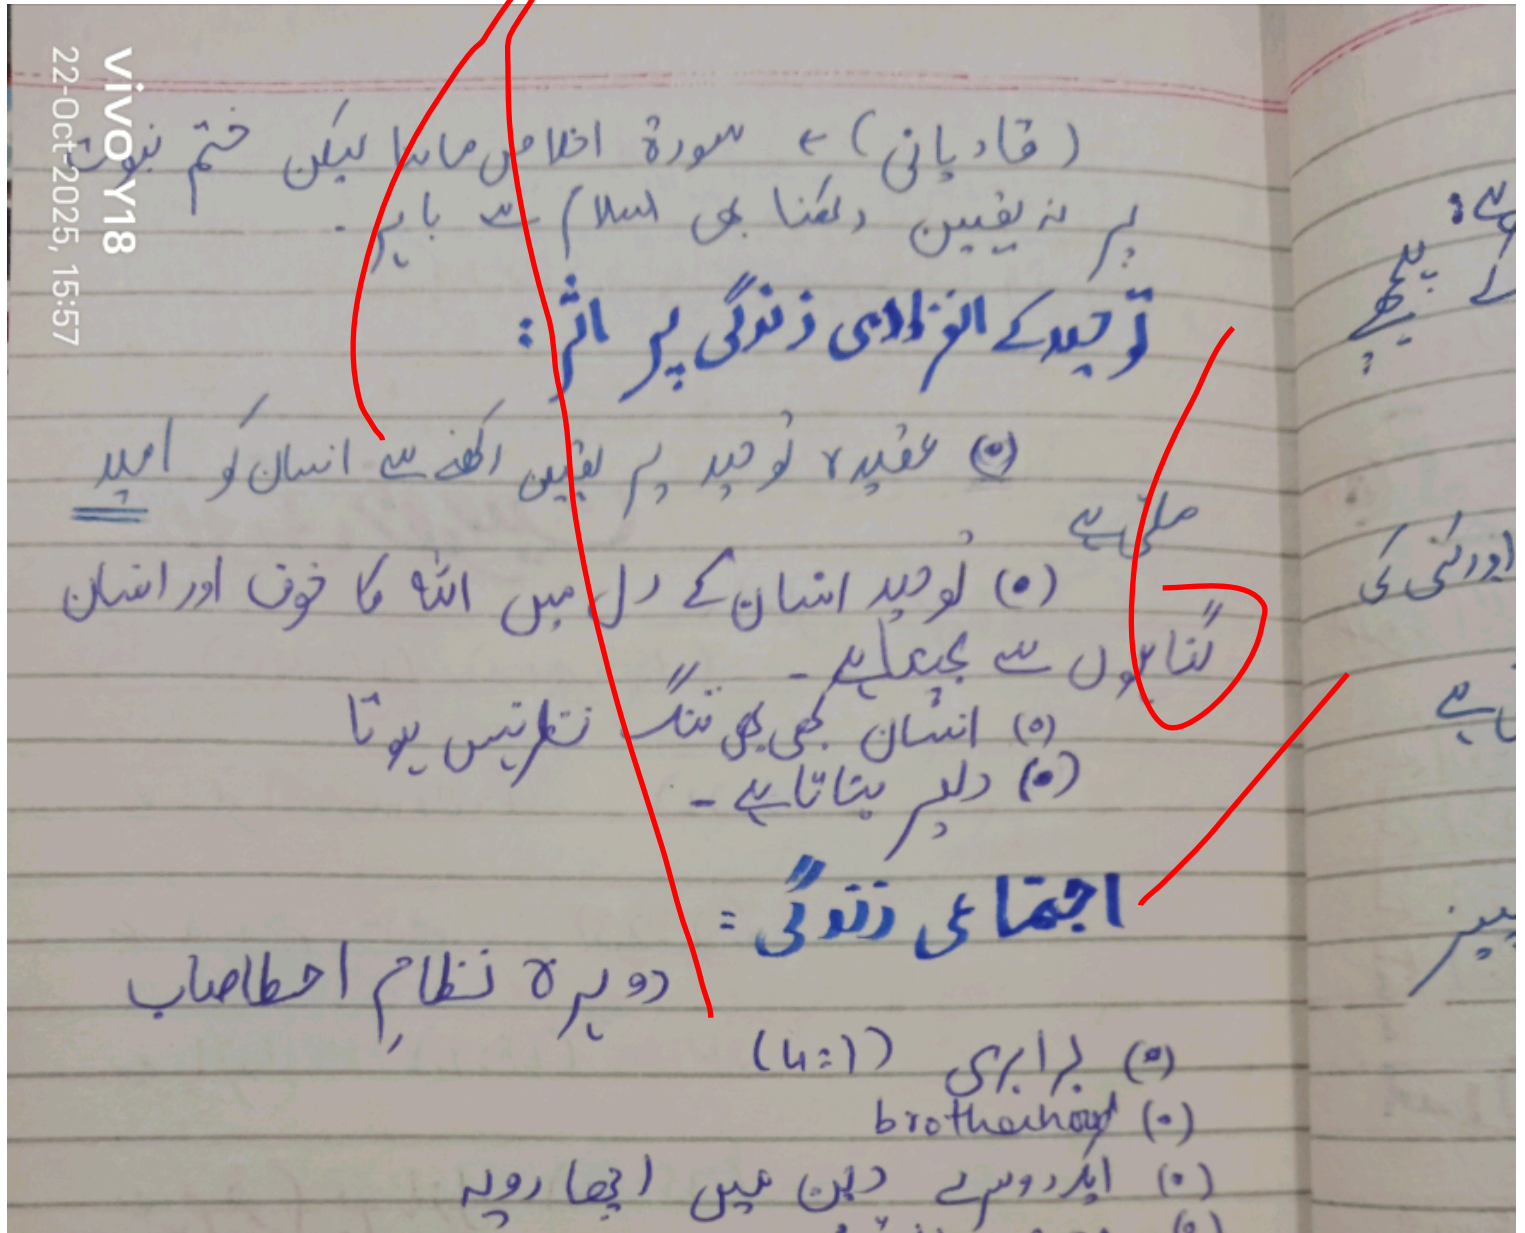 (قادیانی) ← سورۃ اخلاص مانتا لیکن ختم نبوت
پر نہ یقین رکھنا بھی اسلام سے باہر۔
توحید کے انفرادی زندگی پر اثر:
(۰) عقیدہ توحید پر یقین رکھنے سے انسان کو امید
ملتی ہے
(۰) توحید انسان کے دل میں اللہ کا خوف اور انسان
گناہوں سے بچتا ہے۔
(۰) انسان کبھی بھی تنگ نظر نہیں ہوتا
(۰) دلیر بناتا ہے۔
اجتماعی زندگی:
دوہرہ نظامِ
(۰) برابری (4:1)
(۰) brotherhood
(۰) دین میں اچھا رویہ
vivo Y18
22-Oct-2025, 15:57